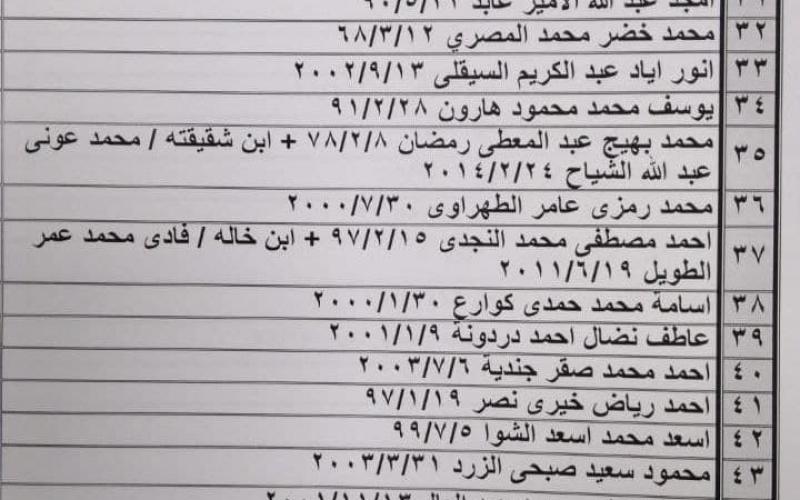 ٣١ امجد عبد الله الامير عابد
٣٢ محمد خضر محمد المصري ٦٨/٣/١٢
٣٣ انور اياد عبد الكريم السيقلى ٢٠٠٢/٩/١٣
٣٤ يوسف محمد محمود هارون ٩١/٢/٢٨
٣٥ محمد بهيج عبد المعطى رمضان ٧٨/٢/٨ + ابن شقيقته / محمد عونى
عبد الله الشياح ٢٠١٤/٢/٢٤
٣٦ محمد رمزى عامر الطهراوى ٢٠٠٠/٧/٣٠
٣٧ احمد مصطفى محمد النجدى ٩٧/٢/١٥ + ابن خاله / فادى محمد عمر
الطويل ٢٠١١/٦/١٩
٣٨ اسامة محمد حمدى كوارع ٢٠٠٠/١/٣٠
٣٩ عاطف نضال احمد دردونة ٢٠٠١/١/٩
٤٠ احمد محمد صقر جندية ٢٠٠٣/٧/٦
٤١ احمد رياض خيرى نصر ٩٧/١/١٩
٤٢ اسعد محمد اسعد الشوا ٩٩/٧/٥
٤٣ محمود سعيد صبحى الزرد ٢٠٠٣/٣/٣١